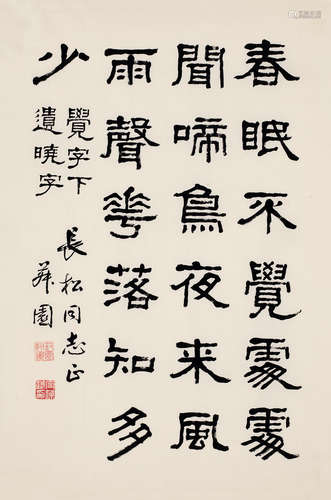 春眠不覺處處
聞啼鳥夜来風
雨聲華落知多
少
覺字下
遺曉字
長松同志正
園